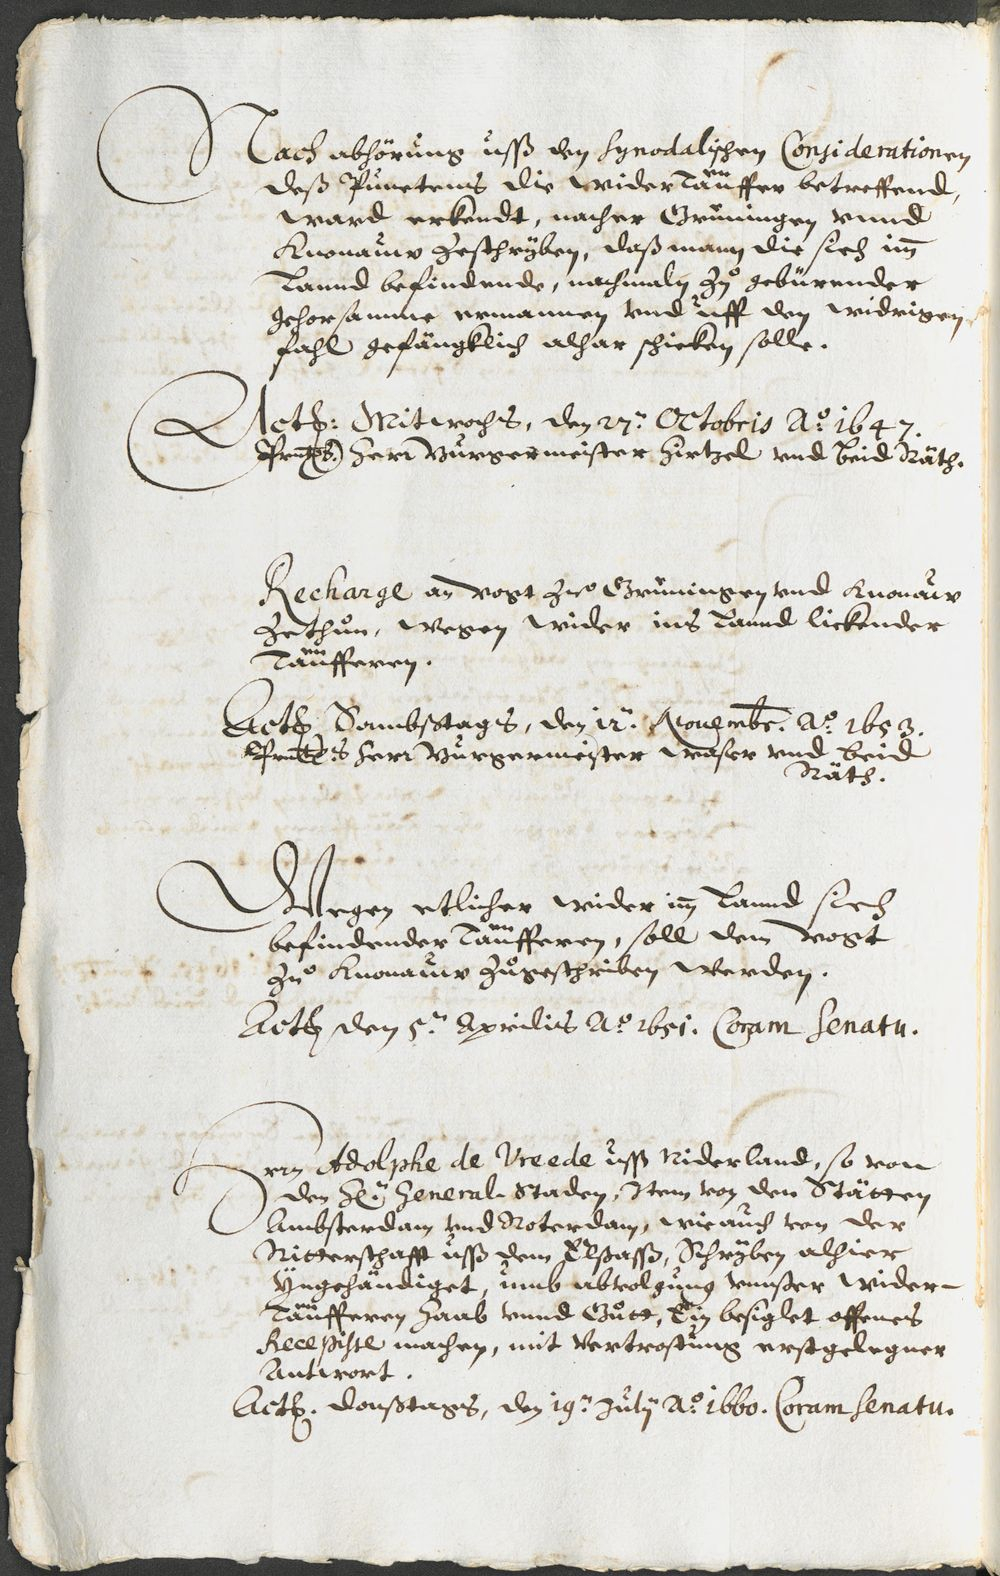 Nach abhörung uß den synodalischen Considerationen
deß Punctens die widerTäüffer betreffend,
ward erkendt, nacher Grüningen vnnd
Knonauw zeschryben, daß mann die sich im
Lannd befindende, nachmaln zů gebürender
gehorsamme ermannen vnd uff den widrigen
fahl gefängklich alhar schicken solle.
Actũ: Mitwochs, den 27.ᵗ Octobris Aº. 1647.
Pntẽs) Herr Burgermeister Hirtzel vnd Beid Räth.
Recharge an Vogt zuo Grüningen vnd Knonauw
zethůn, wegen wider ins Lannd
Täüfferen.
Actũ Sambßtags, den 12.ᵗ Novemb. Aº. 1653.
Pntẽs Herr Burgermeister Waser vnd Beid
Räth.
Wegen etlicher wider im Lannd sich
befindender Täüfferen, soll dem Vogt
zuo Knonauw zůgeschriben werden.
Actũ den 5.ᵗ Aprilis Aº. 1651. Coram Senatu.
Hrn Adolphe de Vreede uß Niderland, so von
den General-Staden, Item von den Stätten
Ambsterdam vnd Roterdam, wie auch von der
Ritterschafft uß dem Elsaß, Schryben alhier
yngehändiget, umb abvolgung vnnßer wider-
Täüfferen Haab vnnd Gůtt, Ein besiglet offenes
Recepisse machen, mit Vertrostung erstgelegner
Antwort.
Actũ. Donstags, den 19.ᵗ July Aº. 1660. Coram Senatu.